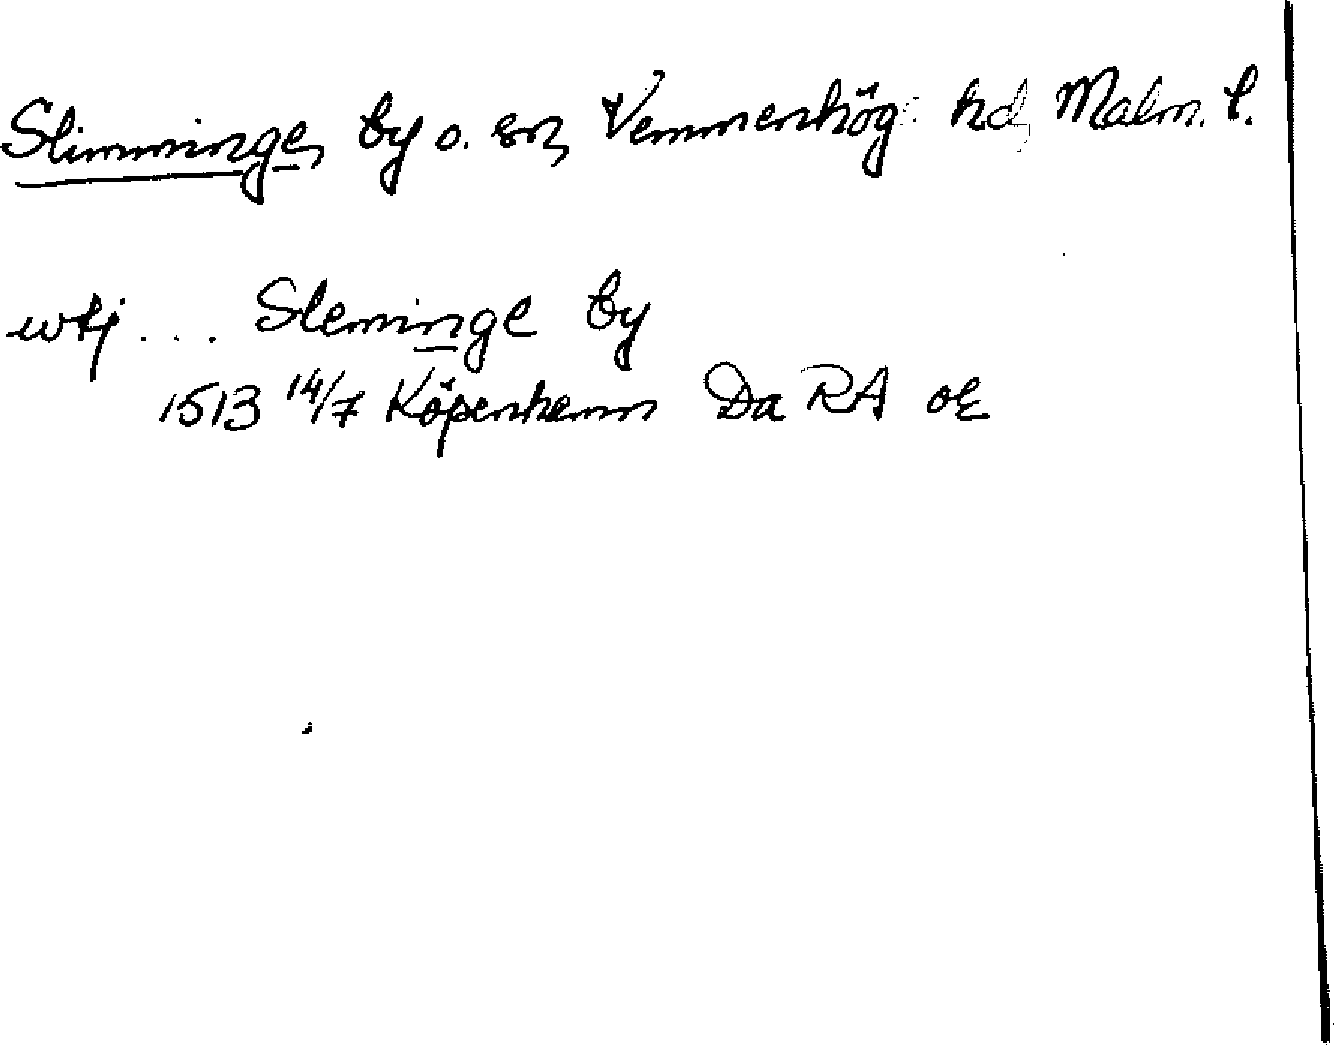 Slimminge, by o. sn, Vemmenhög hd, Malm. l.
wtj ... Sleminge by
1513 14/7 Köpenhamn Da RA oc